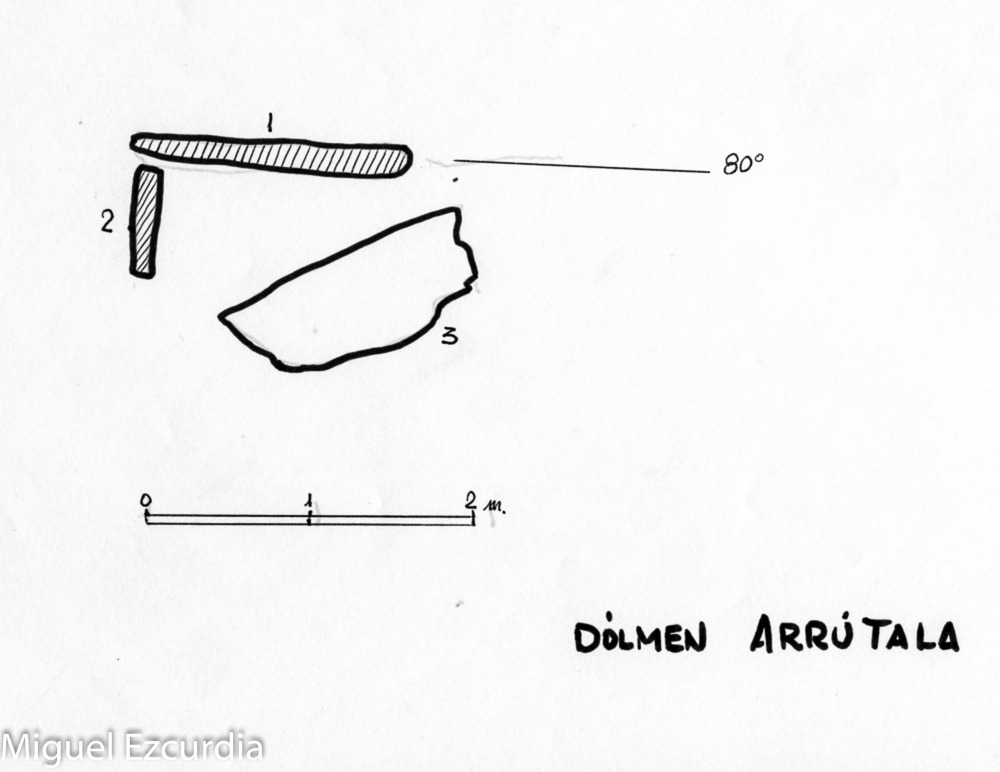 1
80°
2
3
0 1 2 m.
DÓLMEN ARRÚTALA
Miguel Ezcurdia